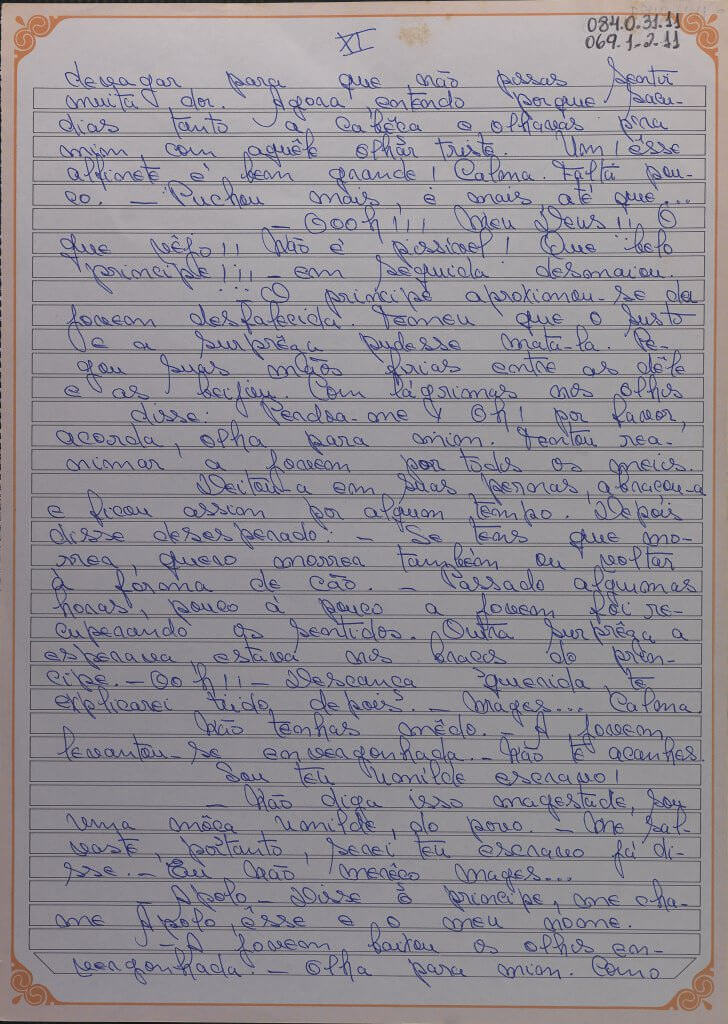 084.0.31.11
069.1-2.11
XI
devagar para que não possas sentir
muita dor. Agora, entendo porque sacu-
dias tanto a cabêça e olhavas pra
mim com aquêle olhar triste. Um! êsse
alfinete é bem grande! Calma. Falta pou-
co. — Puchou mais, e mais, até que...
— Oooh!!! Meu Deus!! O
que vêjo!! Não é possivel! Que belo
principe!!! — em seguida desmaiou.
— O principe aproximou-se da
jovem desfalecida. Temeu que o susto
e a surprêsa pudesse matá-la. Pe-
gou suas mãos frias entre as dêle
e as beijou. Com lágrimas nos olhos
disse: Perdoa-me! Oh! por favor,
acorda, olha para mim. Tentou rea-
nimar a jovem por todos os meios.
Deitou-a em suas pernas, abraçou-a
e ficou assim por algum tempo. Depois
disse desesperado: — Se tens que mo-
rrer, quero morrer também ou voltar
à fórma de cão. — Passado algumas
horas, pouco á pouco a jovem foi re-
cuperando os sentidos. Outra surprêza a
esperava, estava nos braços do prin-
cipe. — Oo h!! — Descança querida, te
explicarei tudo depois. — Mages... Calma
Não tenhas mêdo. — A jovem
levantou-se envergonhada. — Não te acanhes.
Sou teu umilde escravo!
— Não diga isso magestade, sou
uma môça umilde, do povo. — Me sal-
vaste, portanto, serei teu escravo já di-
sse. — Eu não merêço mages...
— Apolo — Disse o principe, me cha-
me Apolo, êsse e o meu nome.
— A jovem baixou os olhos en-
vergonhada — Olha para mim. Como